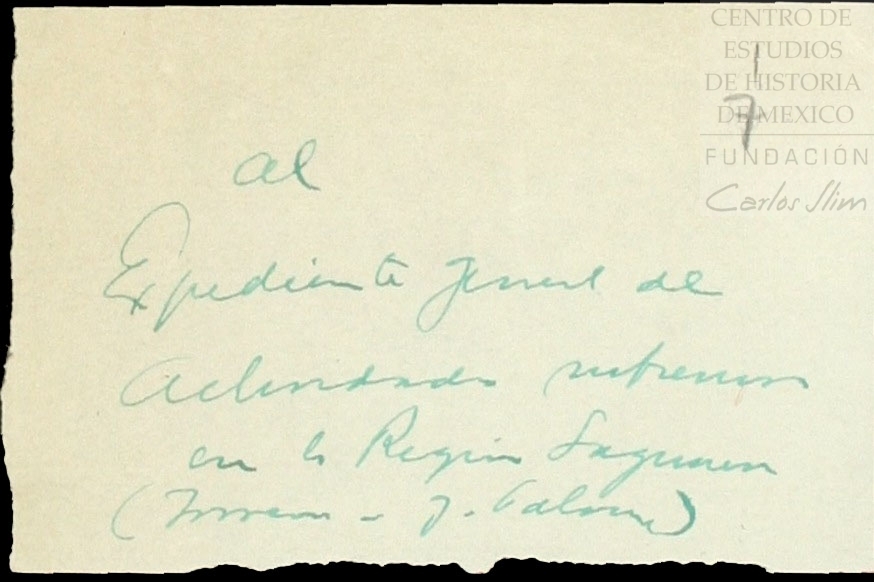 CENTRO DE
ESTUDIOS
DE HISTORIA
DE MEXICO
FUNDACIÓN
Carlos Slim
1
7
al
Expediente general de
en la Región Lagunera
(Torreón - G. Palacio)